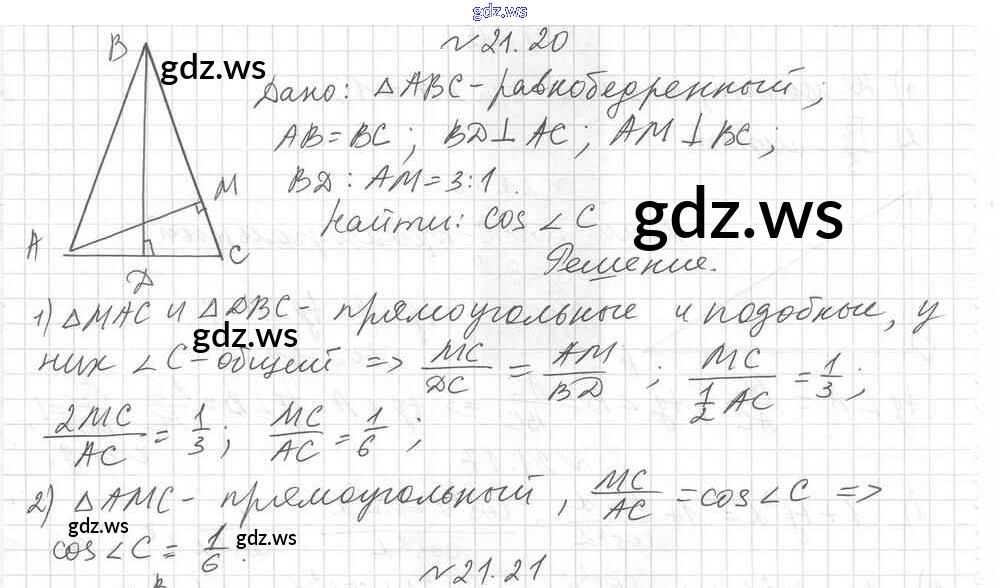 gdz.ws
№ 21.20
B
gdz.ws
Дано: △ABC - равнобедренный;
AB = BC; BD ⊥ AC; AM ⊥ BC;
M
BD : AM = 3:1.
Найти: cos ∠C
gdz.ws
A
C
D
Решение.
1) △MAC и △DBC - прямоугольные и подобные, у
gdz.ws
них ∠C - общий => MC/DC = AM/BD; MC/(1/2 AC) = 1/3;
2MC/AC = 1/3; MC/AC = 1/6;
2) △AMC - прямоугольный, MC/AC = cos ∠C =>
gdz.ws
cos ∠C = 1/6.
gdz.ws
№ 21.21
B